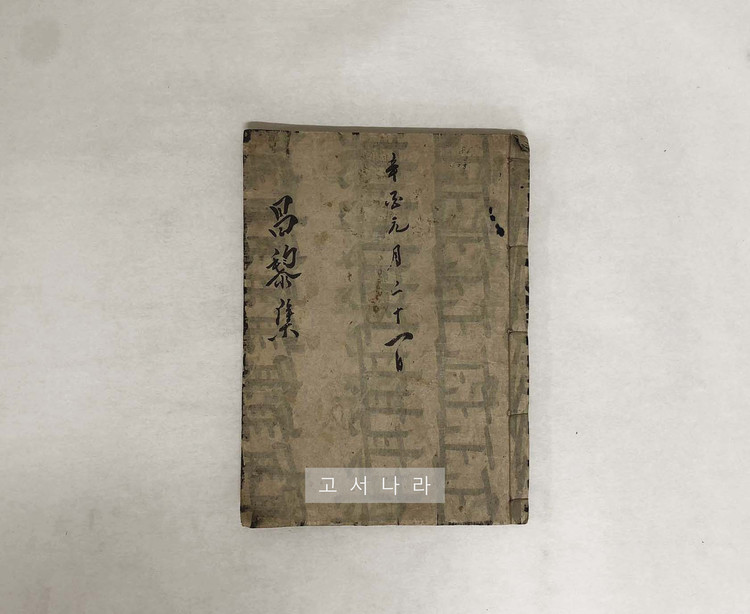 辛酉元月二十一日
昌黎集
고서나라